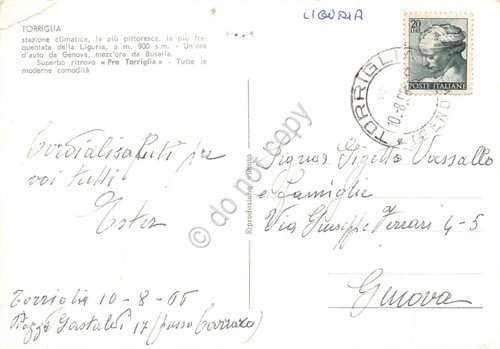 TORRIGLIA
stazione climatica, la più pittoresca, la più fre-
quentata della Liguria, a m. 800 s.m. - Un'ora
d'auto da Genova, mezz'ora da Busalla.
Superbo ritrovo « Pro Torriglia » - Tutte le
moderne comodità
LIGURIA
20
LIRE
POSTE ITALIANE
TORRIGLIA
10.8.66
GENOVA
Cordiali saluti per
voi tutti
Ester
Torriglia 10-8-66
Piazza Gastaldi 17 (presso
Riproduzione vietata
Signor Gigetto Vassallo
e Famiglia
Via Giuseppe Ferrari 4-5
Genova
do not copy